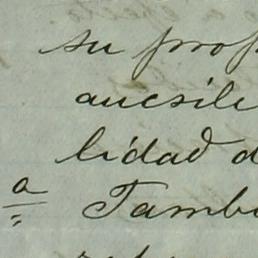 su prop
aucsilie
lidad d
a Tamb